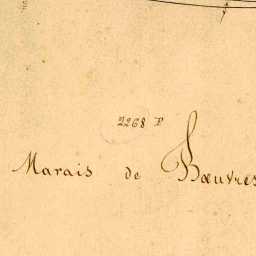 2268 P
Marais de Boeuvres